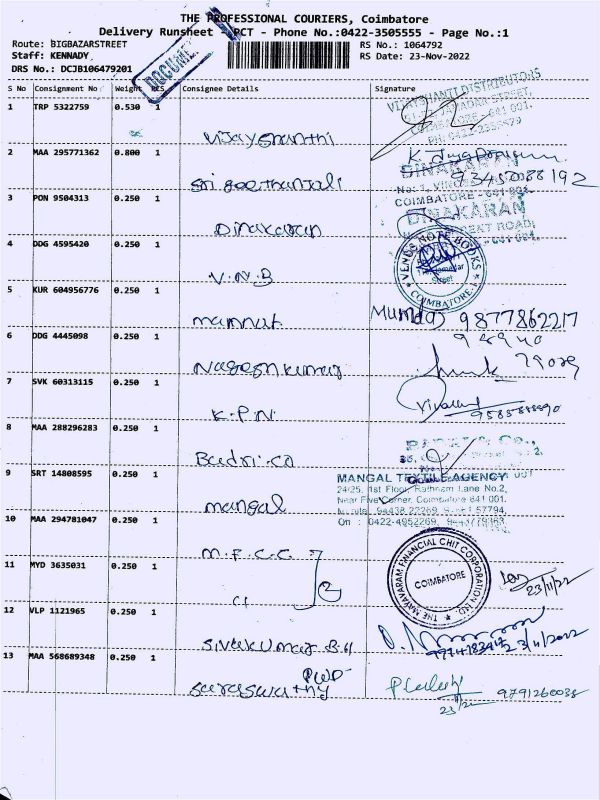 THE PROFESSIONAL COURIERS, Coimbatore
Delivery Runsheet - PCT - Phone No.:0422-3505555 - Page No.:1
Route: BIGBAZARSTREET
RS No.: 1064792
Staff: KENNADY
RS Date: 23-Nov-2022
DRS No.: DCJB106479201
S No Consignment No Weight PCS Consignee Details Signature
1 TRP 5322759 0.530 1
VIJAYSHANTHI DISTRIBUTORS
Vijayshanthi
2 MAA 295771362 0.800 1
Sri Geethanjali
3 PON 9504313 0.250 1
COIMBATORE - 641 001
DINAKARAN
Dinakaran
4 DDG 4595420 0.250 1
VENUS NOTE BOOKS
COIMBATORE-1
V.N.B
5 KUR 604956776 0.250 1
Mumdaj 9877862217
6 DDG 4445098 0.250 1
Nageshkumar
7 SVK 60313115 0.250 1
K.P.N.
8 MAA 288296283 0.250 1
Badri.co
9 SRT 14808595 0.250 1
MANGAL TEXTILE AGENCY
24/25, 1st Floor, Rathnam Lane No.2,
Near Five Corner, Coimbatore 641 001.
mangal
10 MAA 294781047 0.250 1
On : 0422-4952269,
M.F.C.C
11 MYD 3635031 0.250 1
THE MAYAVARAM FINANCIAL CHIT CORPORATION LTD.
COIMBATORE
23/11/22
12 VLP 1121965 0.250 1
Sivakumar B.H
13 MAA 568689348 0.250 1
PWD
Saraswathy
9791260038
23/11/22